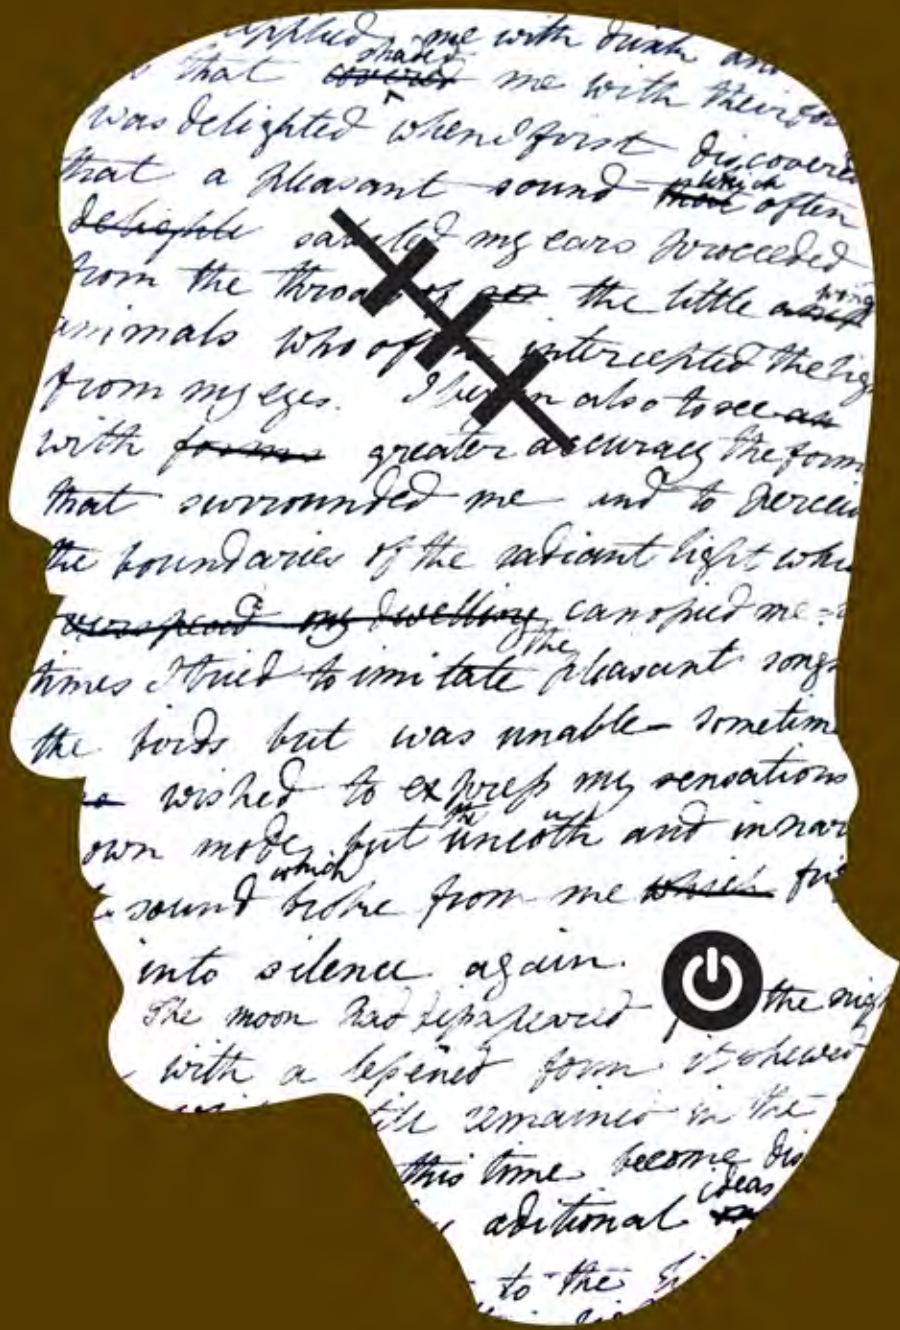 applied me with drink and
that covered shaded me with their
was delighted when I first discovered
that a pleasant sound that which often
delighte saluted my ears proceeded
from the throats of the little winged
animals who often intercepted the lig
from my eyes. I began also to see an
with forms greater accuracy the form
that surrounded me and to percei
the boundaries of the radiant light whi
overspread my dwelling canopied me
times I tried to imitate the pleasant songs
the birds but was unable sometim
wished to express my sensations
own mode, but the uncoth and innar
sound which broke from me which fri
into silence again.
The moon had disappeared the nigh
with a lessened form it shewed
remained in the
this time become dis
aditional ideas
to the